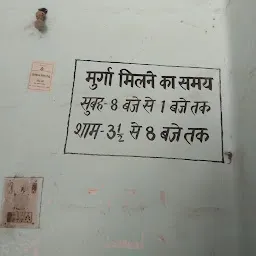 मुर्गा मिलने का समय
सुबह- 8 बजे से 1 बजे तक
शाम- 3½ से 8 बजे तक